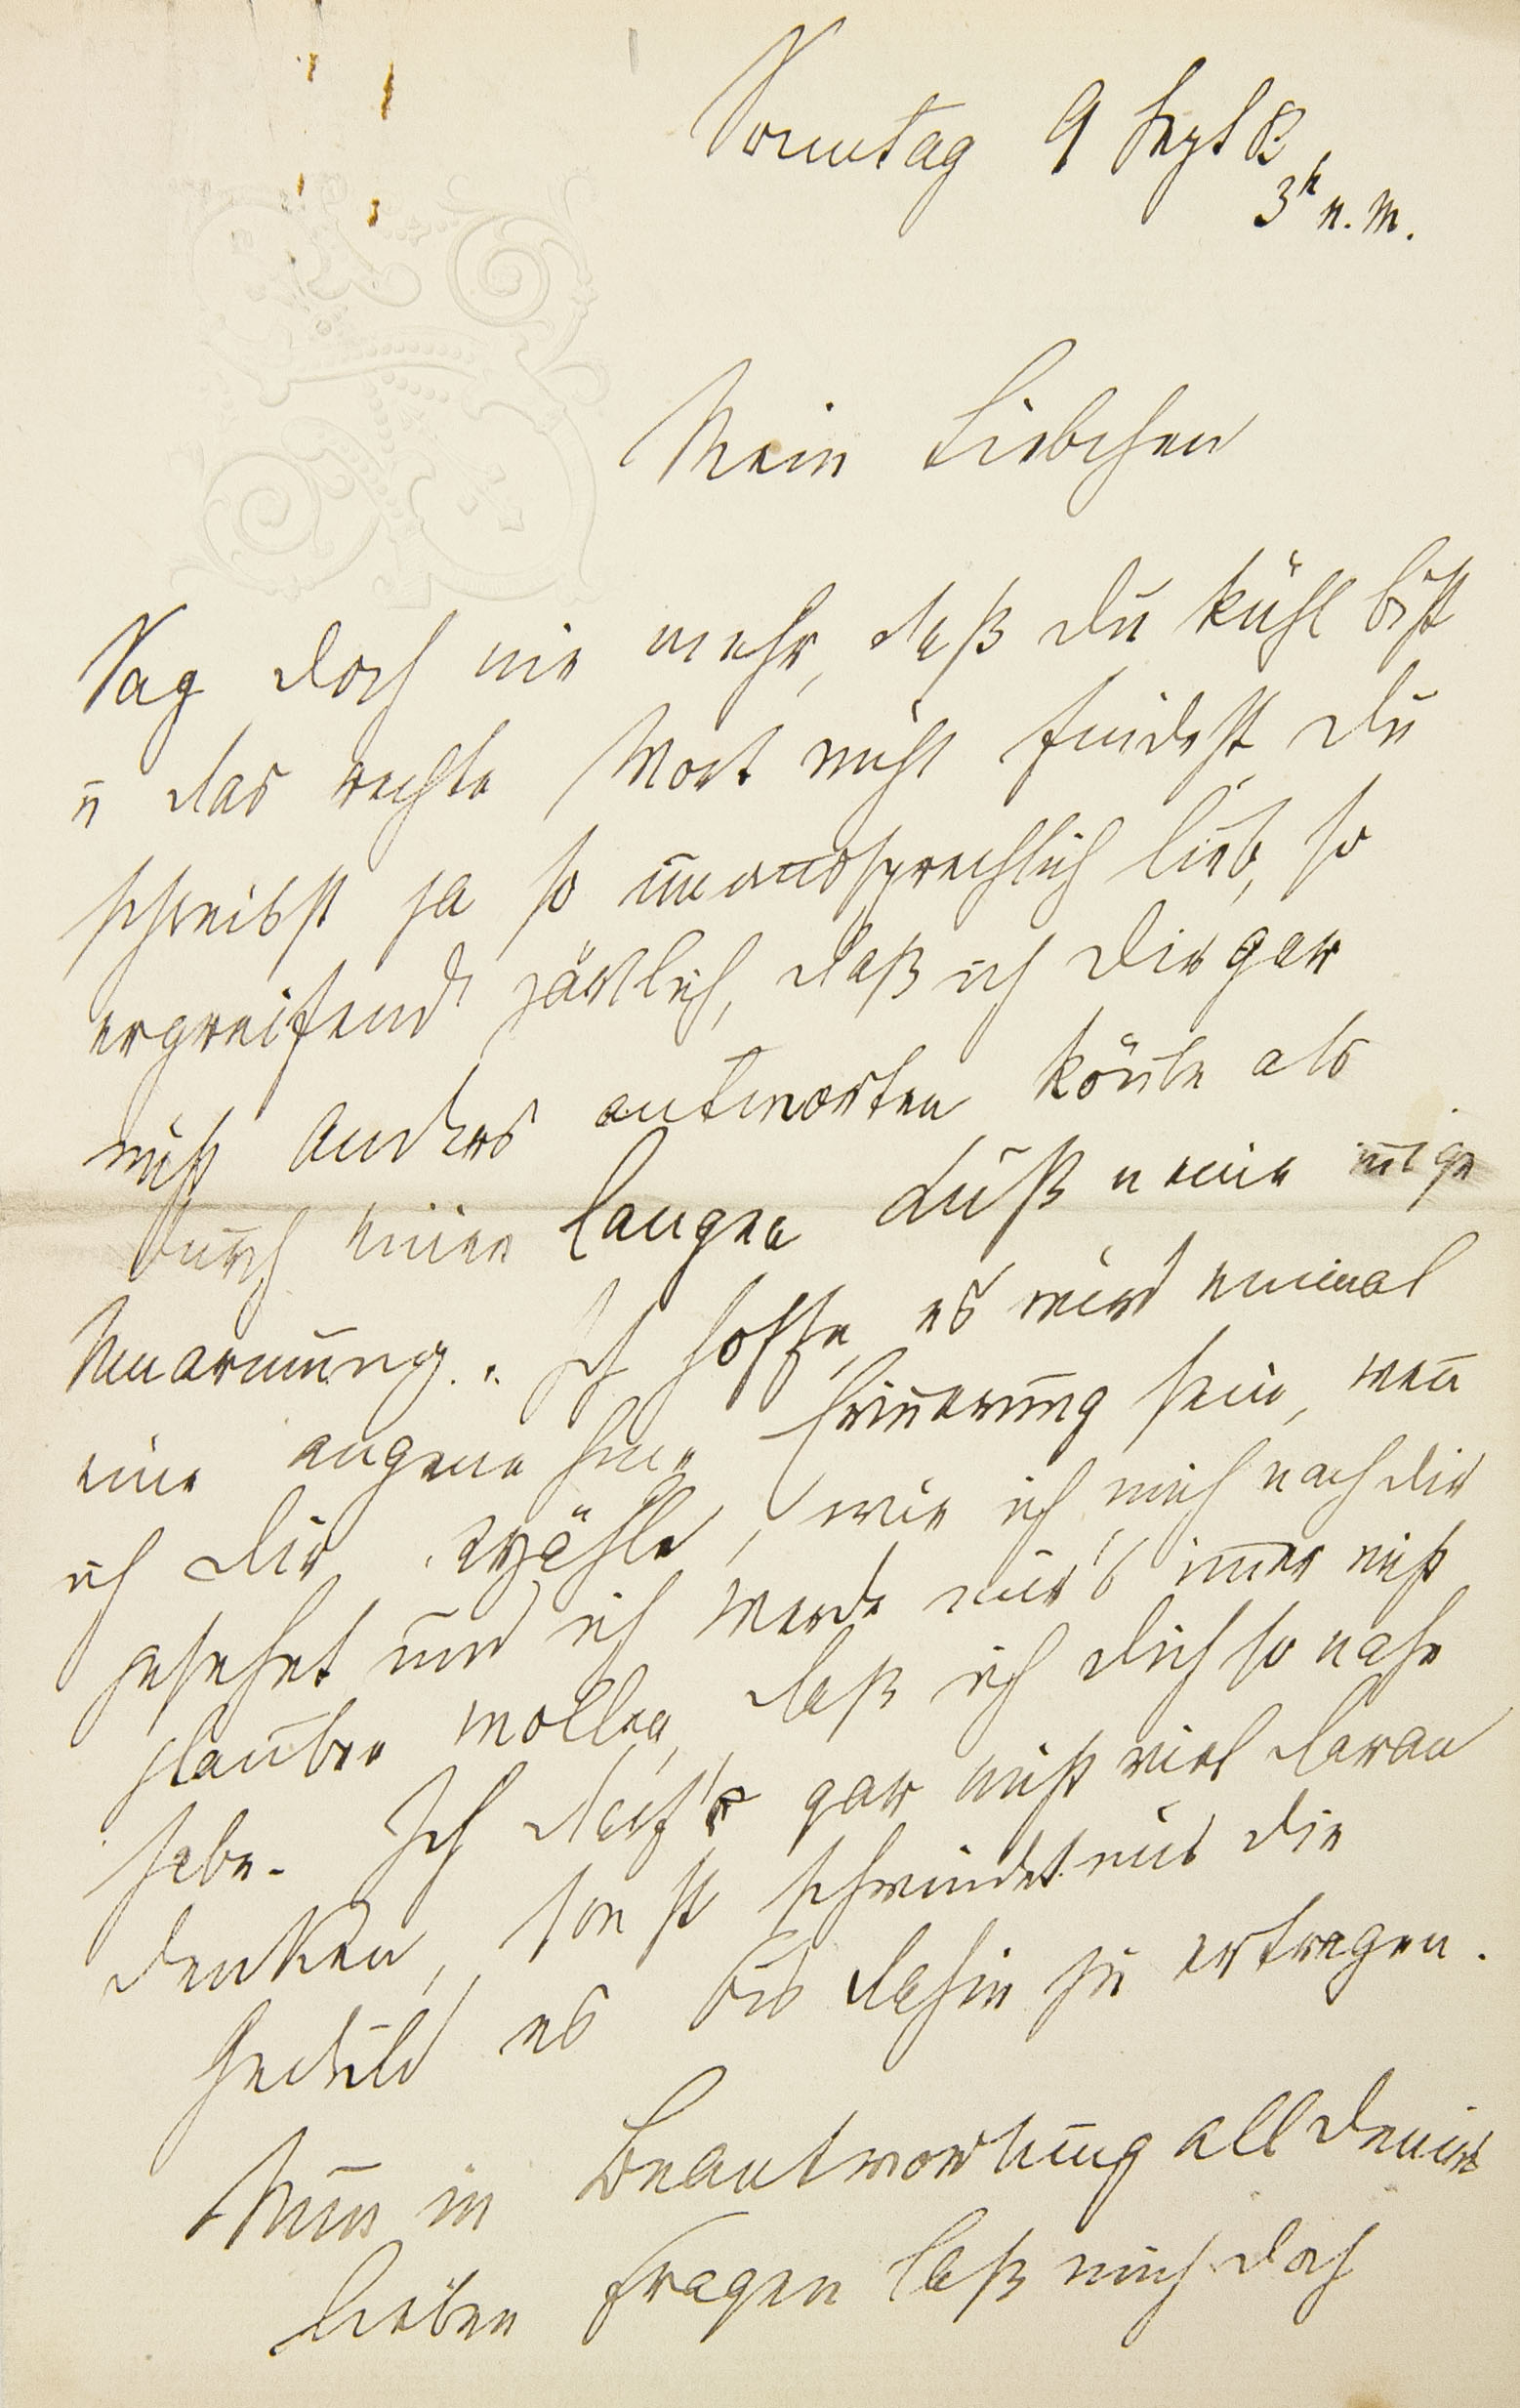 Sonntag 9 Sept 83
3h n. M.
Mein Liebchen
Sag doch nie mehr, daß Du kühl bist
u das rechte Wort nicht findest Du
schreibst ja so unaussprechlich lieb, so
ergreifend zärtlich, daß ich Dir gar
nicht anders antworten kön̄te als
durch einen langen Kuß u eine in̄ige
Umarmung. Ich hoffe, es wird einmal
eine angenehme Erin̄erung sein, wen̄
ich Dir erzähle, wie ich mich nach Dir
gesehnt und ich werde mir's im̄er nicht
glauben wollen, daß ich Dich so nahe
habe. Ich darf's gar nicht viel daran
denken, sonst schwindet mir die
Geduld es bis dahin zu ertragen.
Nun in Beantwortung all Deiner
lieben Fragen laß mich doch